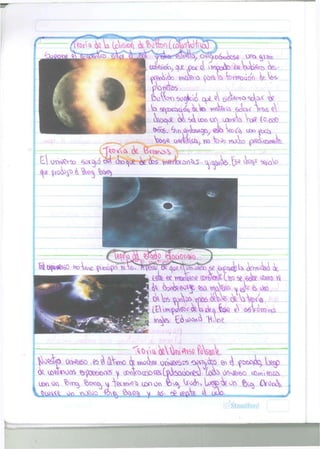 Teoría de la Colisión de Buffon (catastrófica)
Supone el entre el y otra estrella, originándose una gran
colisión, que por el impacto se hubiera des-
prendido materia para la formación de los
planetas.
Buffon sugirió que el sistema solar
la separación de la materia solar tras el
choque del sol con un cometa hace 70.000
años. Sin embargo, esta teoría con poca
base científica, no tuvo mucho
Teoría de Branas
El universo surgió del choque de dos membranas gigantes. Ese choque
que produjo el Bing Bang
Teoría del estado estacionario
El universo no tiene principio ni fin. A pesar de que el universo se expande la densidad de
este se mantiene constante
de los puntos más débiles de la teoría.
(El impulsor de la idea fue el astrónomo
inglés Edward Milne
Teoría del Universo Pulsante
Nuestro universo es el último de muchos universos surgidos en el pasado, luego
de continuas expansiones y contracciones (pulsaciones). Cada universo comienza
con un Bing Bang y termina con un Big Crunch, luego de un Big Crunch
ocurre un nuevo Big Bang y así se repite el ciclo.
Standford